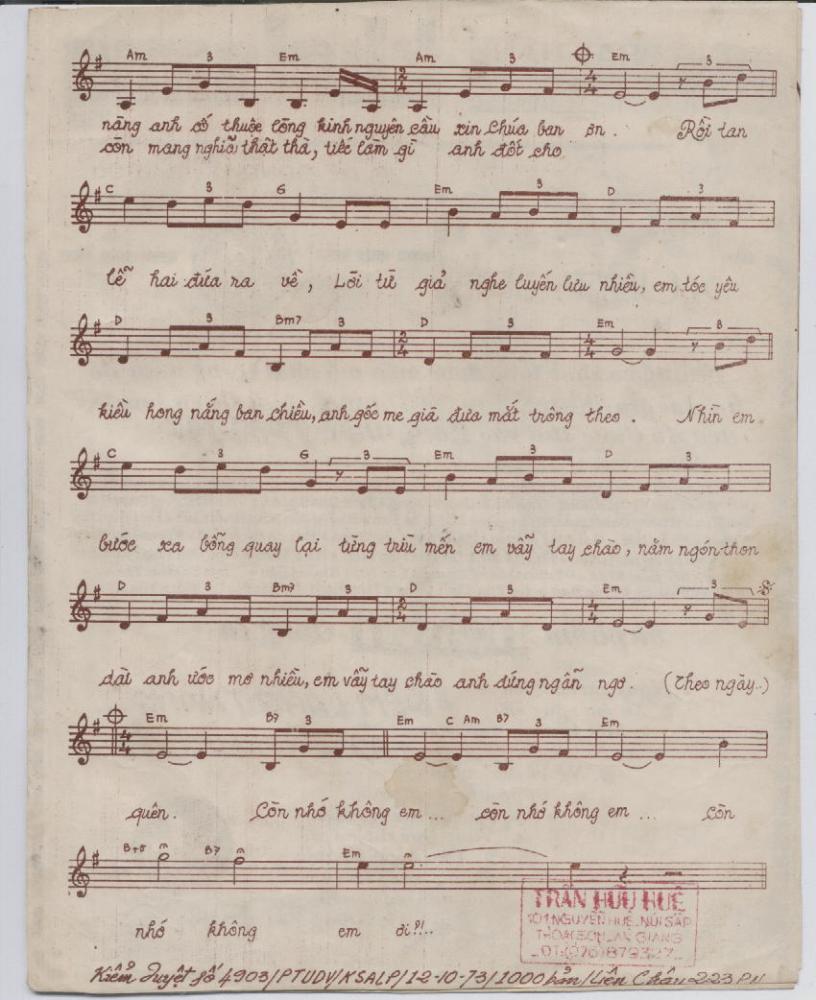 Am 3 Em Am 3 Em 3
nàng anh cố thuộc lòng kinh nguyện cầu xin Chúa ban ơn. Rồi tan
còn mang nghĩa thật thà, tiếc làm gì anh đốt cho
C 3 G Em 3 D 3
lễ hai đứa ra về, Lời từ giả nghe luyến lưu nhiều, em tóc yêu
D 3 Bm7 3 D 3 Em 3
kiều hong nắng ban chiều, anh gốc me già đưa mắt trông theo. Nhìn em
C 3 G 3 Em 3 D 3
bước xa bỗng quay lại từng trìu mến em vẫy tay chào, năm ngón thon
D 3 Bm7 3 D 3 Em 3
dài anh ước mơ nhiều, em vẫy tay chào anh đứng ngẩn ngơ. (Theo ngày..)
Em B7 3 Em C Am B7 3 Em
quên. Còn nhớ không em... còn nhớ không em... còn
B+5 B7 Em
nhớ không em ơi?!..
TRẦN HỮU HUỆ
101 NGUYỄN HUỆ - NÚI SẬP
THOẠI SƠN, AN GIANG
ĐT: (076) 879327
Kiểm duyệt số 4903/PTUDV/KSALP/12-10-73/1000 bản/Liên Châu-223 PN